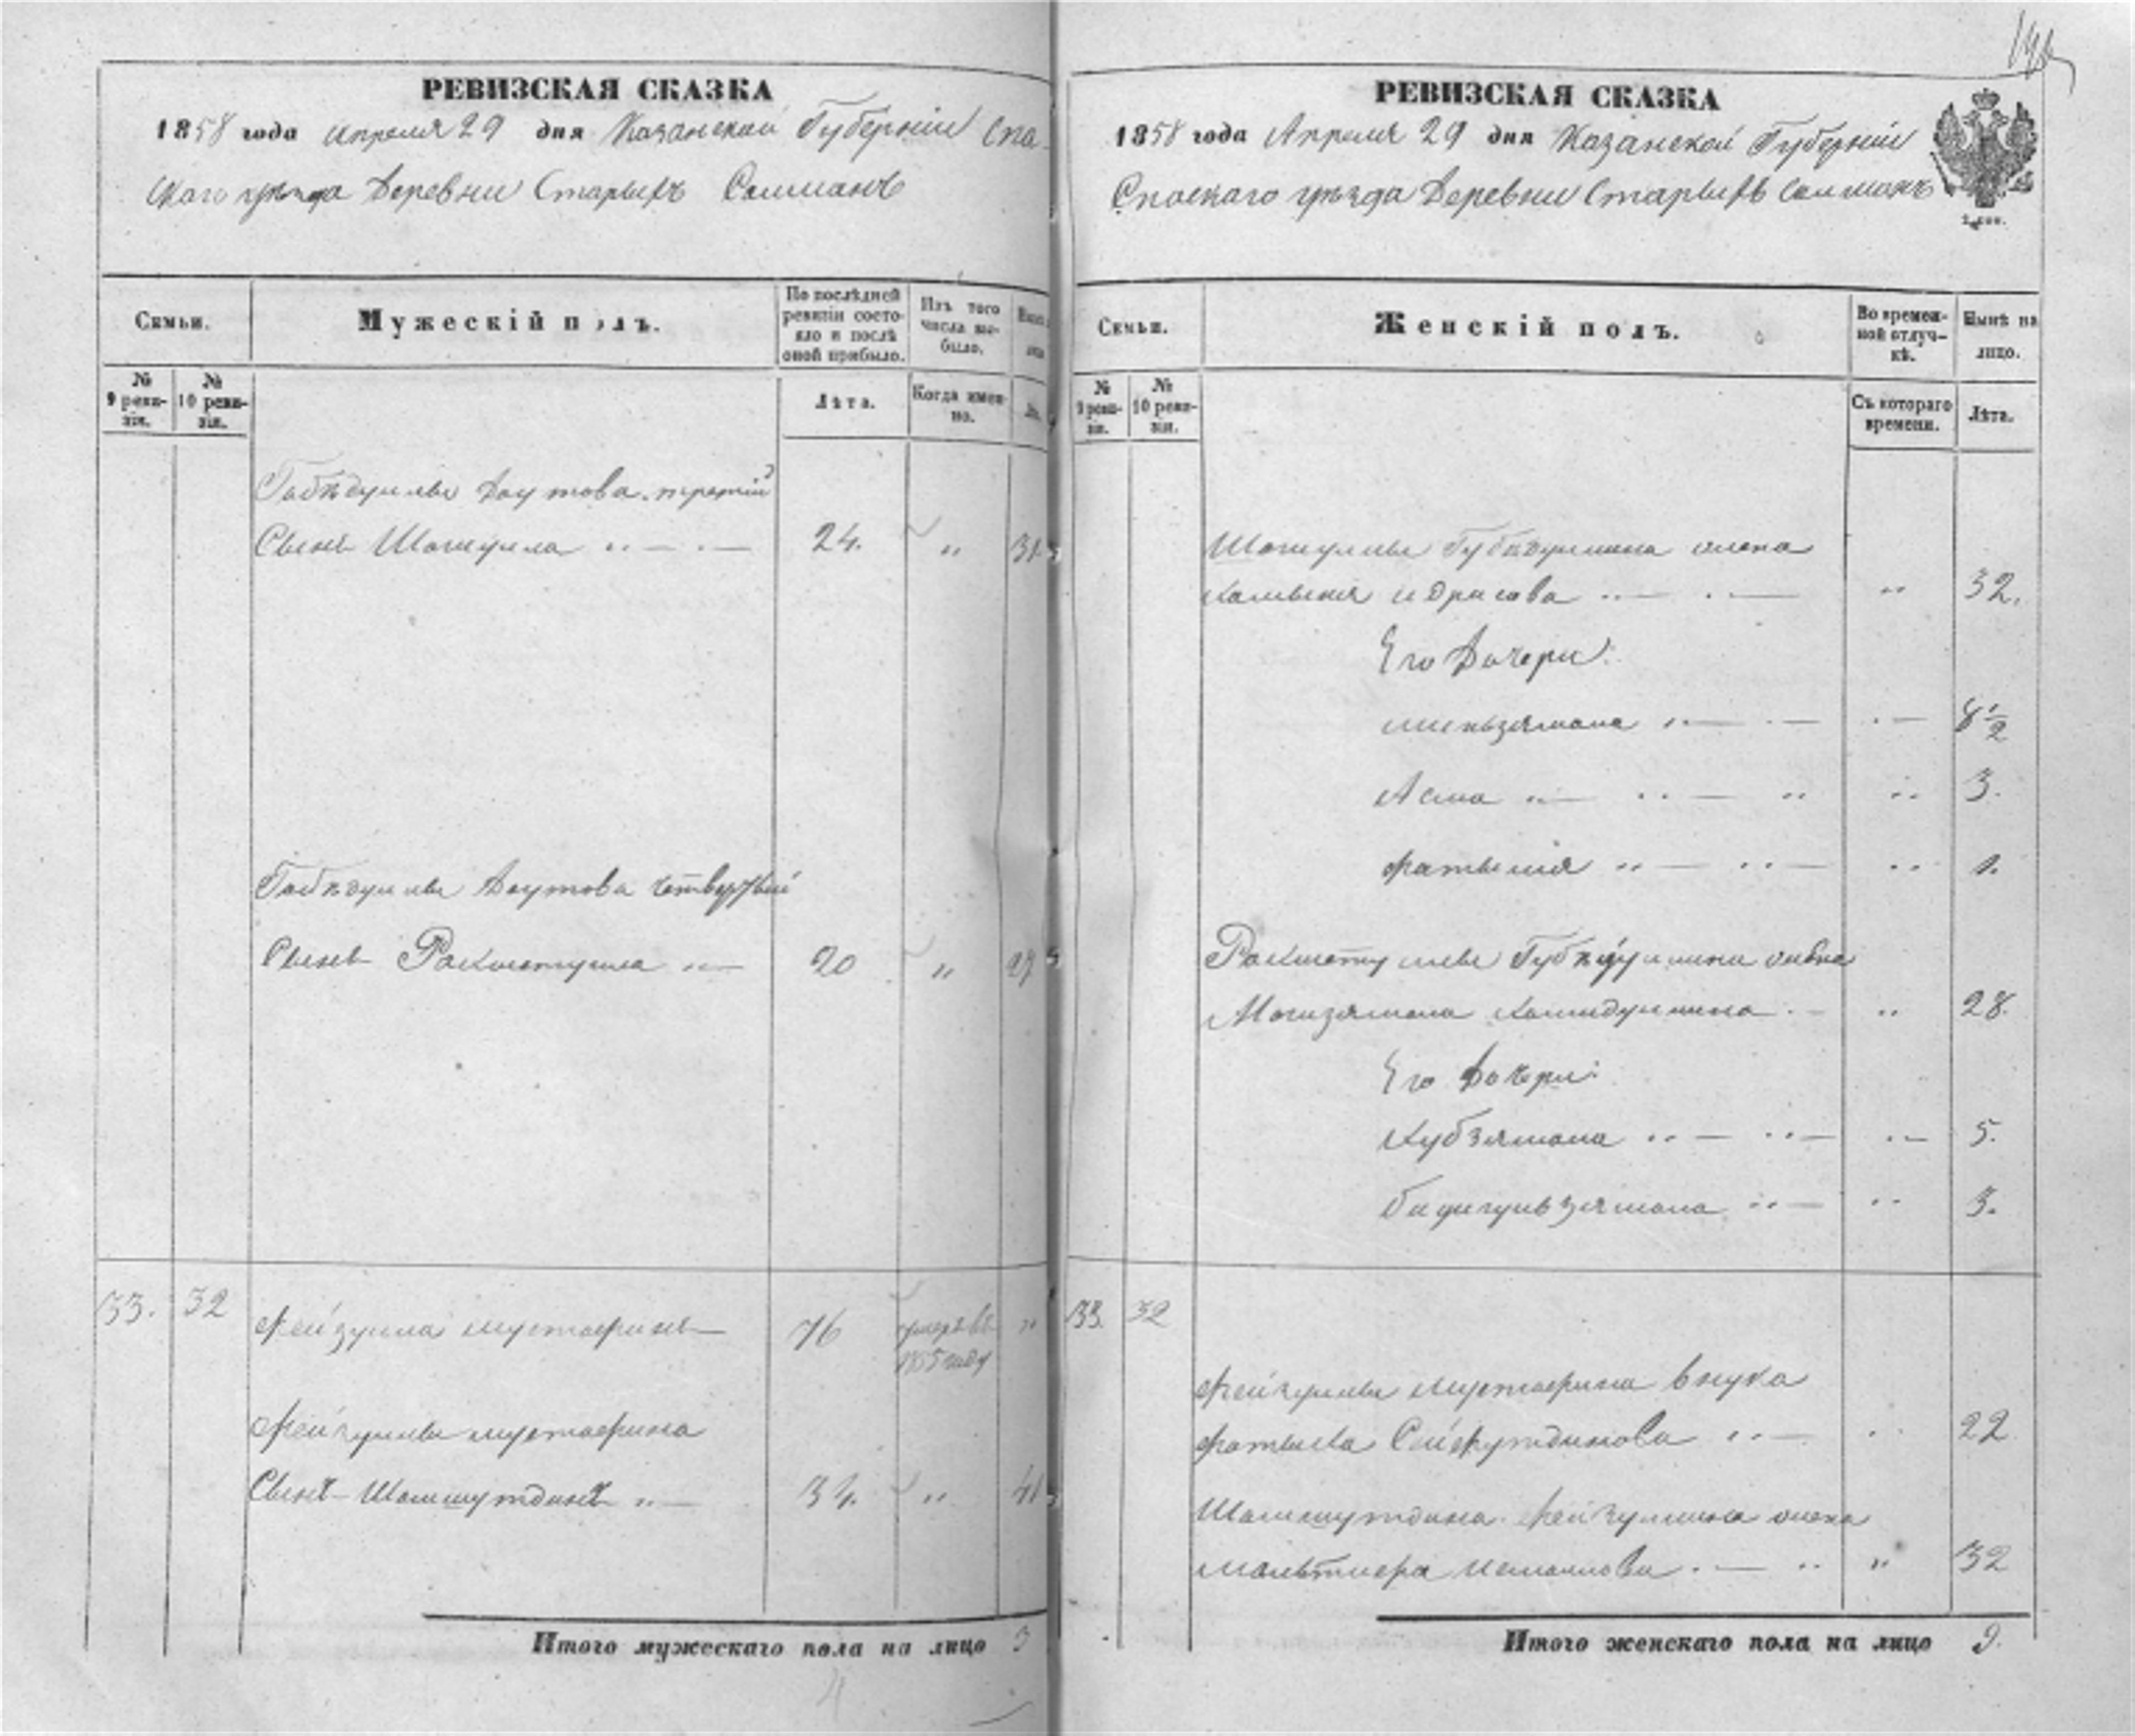 РЕВИЗСКАЯ СКАЗКА
1858 года Апреля 29 дня Казанской Губерніи Спа-
скаго уѣзда Деревни Старыхъ Салманъ
Семьи.
Мужескій полъ.
По послѣдней ревизіи состояло и послѣ оной прибыло.
Изъ того числа выбыло.
№ 9 ревизіи.
№ 10 ревизіи.
Лѣта.
Когда именно.
Габѣдуллы Даутова третій
Сынъ Шагиулла 24. " 31
Габѣдуллы Даутова четвертый
Сынъ Рахматулла 20 " 27
33. 32 Фейзулла Мустафинъ 76 умеръ въ
1855 году "
Фейзуллы Мустафина
Сынъ Шамшутдинъ " 34. " 41
Итого мужескаго пола на лицо 3
РЕВИЗСКАЯ СКАЗКА
1858 года Апреля 29 дня Казанской Губерніи
Спаскаго уѣзда Деревни Старыхъ Салманъ
2 коп.
Семьи.
Женскій полъ.
Во временной отлучкѣ.
Нынѣ на лицо.
№ 9 ревизіи.
№ 10 ревизіи.
Съ котораго времени.
Лѣта.
Шагиуллы Губѣдуллина жена
Идрисова " 32.
Его Дочери:
Миньзямала 8 1/2
Асма 3.
Фатыма 1.
Рахматуллы Губѣдуллина жена
Магизямала Хамидуллина 28.
Его Дочери:
Хубзямала 5.
Бадигульзямала 3.
33. 32
Фейзуллы Мустафина внука
Сейфутдинова 22
Шамшутдина Фейзуллина жена
Исмаилова " 32
Итого женскаго пола на лицо 9.